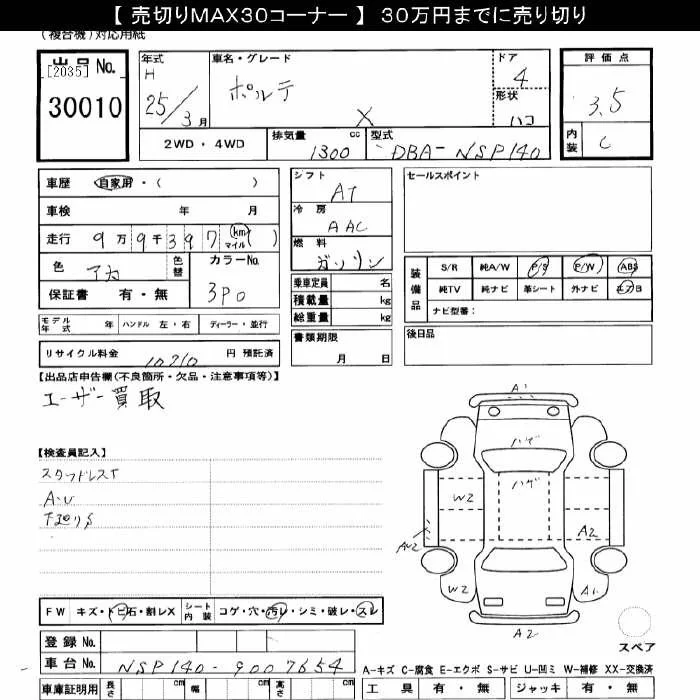 【 売切りMAX30コーナー 】 30万円までに売り切り
(複合機)対応用紙
出品 No.
[2035]
30010
年式
H
25/3月
車名・グレード
ポルテ
X
ドア
4
形状
ハコ
評価点
3.5
内装
C
2WD・4WD
排気量
cc
1300
型式
DBA-NSP140
車歴 自家用・( )
車検 年 月
走行 9万9千397 km マイル ( )
色 アカ
色替
カラーNo.
3P0
保証書 有・無
シフト
AT
冷房
AAC
燃料
ガソリン
乗車定員 名
積載量 kg
総重量 kg
セールスポイント
装備品
S/R 純A/W P/S P/W ABS
純TV 純ナビ 革シート 外ナビ エアB
ナビ型番:
モデル年式 年 ハンドル 左・右 ディーラー・並行
書類期限
月 日
後日品
リサイクル料金 10710 円 預託済
【出品店申告欄(不良箇所・欠品・注意事項等)】
ユーザー買取
【検査員記入】
スタッドレスT
A.U
下回りS
A1
ハゲ
ハゲ
W2
A2
AU2
W2
A1
A2
スペア
FW キズ・トビ石・割レX
シート内装 コゲ・穴・汚レ・シミ・破レ・スレ
登録 No.
車台 No. NSP140-9007654
車庫証明用 長さ cm 幅 cm 高さ cm
A-キズ C-腐食 E-エクボ S-サビ U-凹ミ W-補修 XX-交換済
工具 有・無 ジャッキ 有・無